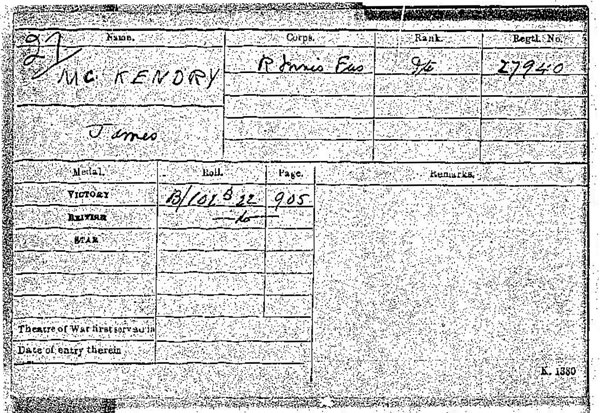 27
Name. Corps. Rank. Regtl. No.
MC KENDRY R Innis Fus Pte 27940
James
Medal. Roll. Page. Remarks.
VICTORY B/101 B 22 905
BRITISH —do—
STAR
Theatre of War first served in
Date of entry therein
K. 1380